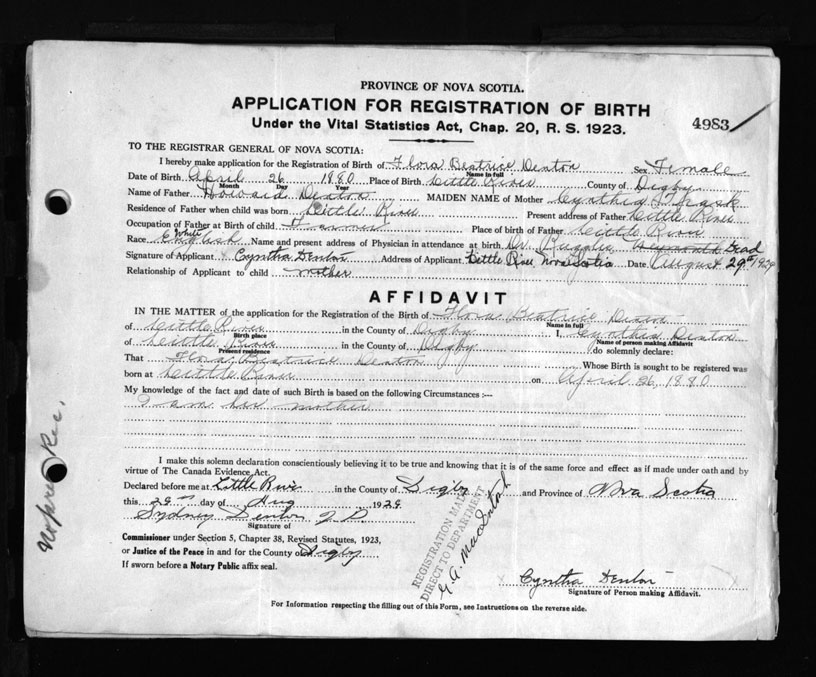 PROVINCE OF NOVA SCOTIA.
APPLICATION FOR REGISTRATION OF BIRTH
4983
Under the Vital Statistics Act, Chap. 20, R. S. 1923.
TO THE REGISTRAR GENERAL OF NOVA SCOTIA:
I hereby make application for the Registration of Birth of Flora Beatrice Denton Sex Female
Name in full
Date of Birth April 26 1880 Place of Birth Little River County of Digby
Month Day Year
Name of Father Howard Denton MAIDEN NAME of Mother Cynthia Trask
Residence of Father when child was born Little River Present address of Father Little River
Occupation of Father at Birth of child Farmer Place of birth of Father Little River
White
Race English Name and present address of Physician in attendance at birth Dr. Dead
Signature of Applicant Cyntha Denton Address of Applicant Little River Nova Scotia Date August 29th 1929
Relationship of Applicant to child mother
AFFIDAVIT
IN THE MATTER of the application for the Registration of the Birth of Flora Beatrice Denton
Name in full
of Little River in the County of Digby I, Cynthia Denton
Birth place Name of person making Affidavit
of Little River in the County of Digby do solemnly declare:
Present residence
That Flora Beatrice Denton Whose Birth is sought to be registered was
born at Little River on April 26, 1880
My knowledge of the fact and date of such Birth is based on the following Circumstances :—
I am her mother
No prev. Rec.
I make this solemn declaration conscientiously believing it to be true and knowing that it is of the same force and effect as if made under oath and by
virtue of The Canada Evidence Act.
Declared before me at Little River in the County of Digby and Province of Nova Scotia
this 29th day of Aug 1929
Sydney Denton J. P.
Signature of
Commissioner under Section 5, Chapter 38, Revised Statutes, 1923,
or Justice of the Peace in and for the County of Digby
If sworn before a Notary Public affix seal.
REGISTRATION MA
DIRECT TO DEPARTMENT
MacIntosh
Cyntha Denton
Signature of Person making Affidavit.
For Information respecting the filling out of this Form, see Instructions on the reverse side.